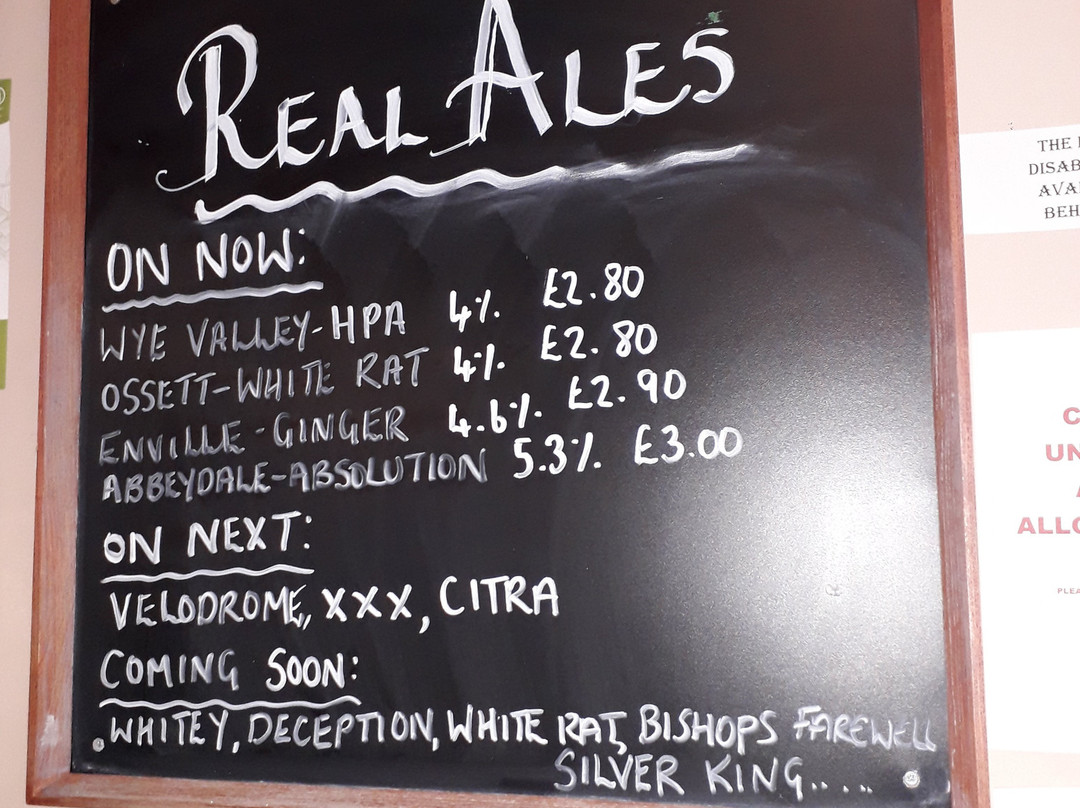 REAL ALES
ON NOW:
WYE VALLEY-HPA 4%. £2.80
OSSETT-WHITE RAT 4%. £2.80
ENVILLE-GINGER 4.6%. £2.90
ABBEYDALE-ABSOLUTION 5.3%. £3.00
ON NEXT:
VELODROME, XXX, CITRA
COMING SOON:
WHITEY, DECEPTION, WHITE RAT, BISHOPS FAREWELL
SILVER KING.....
THE
DISAB
AVA
BEH
UN
ALLO
PLEA